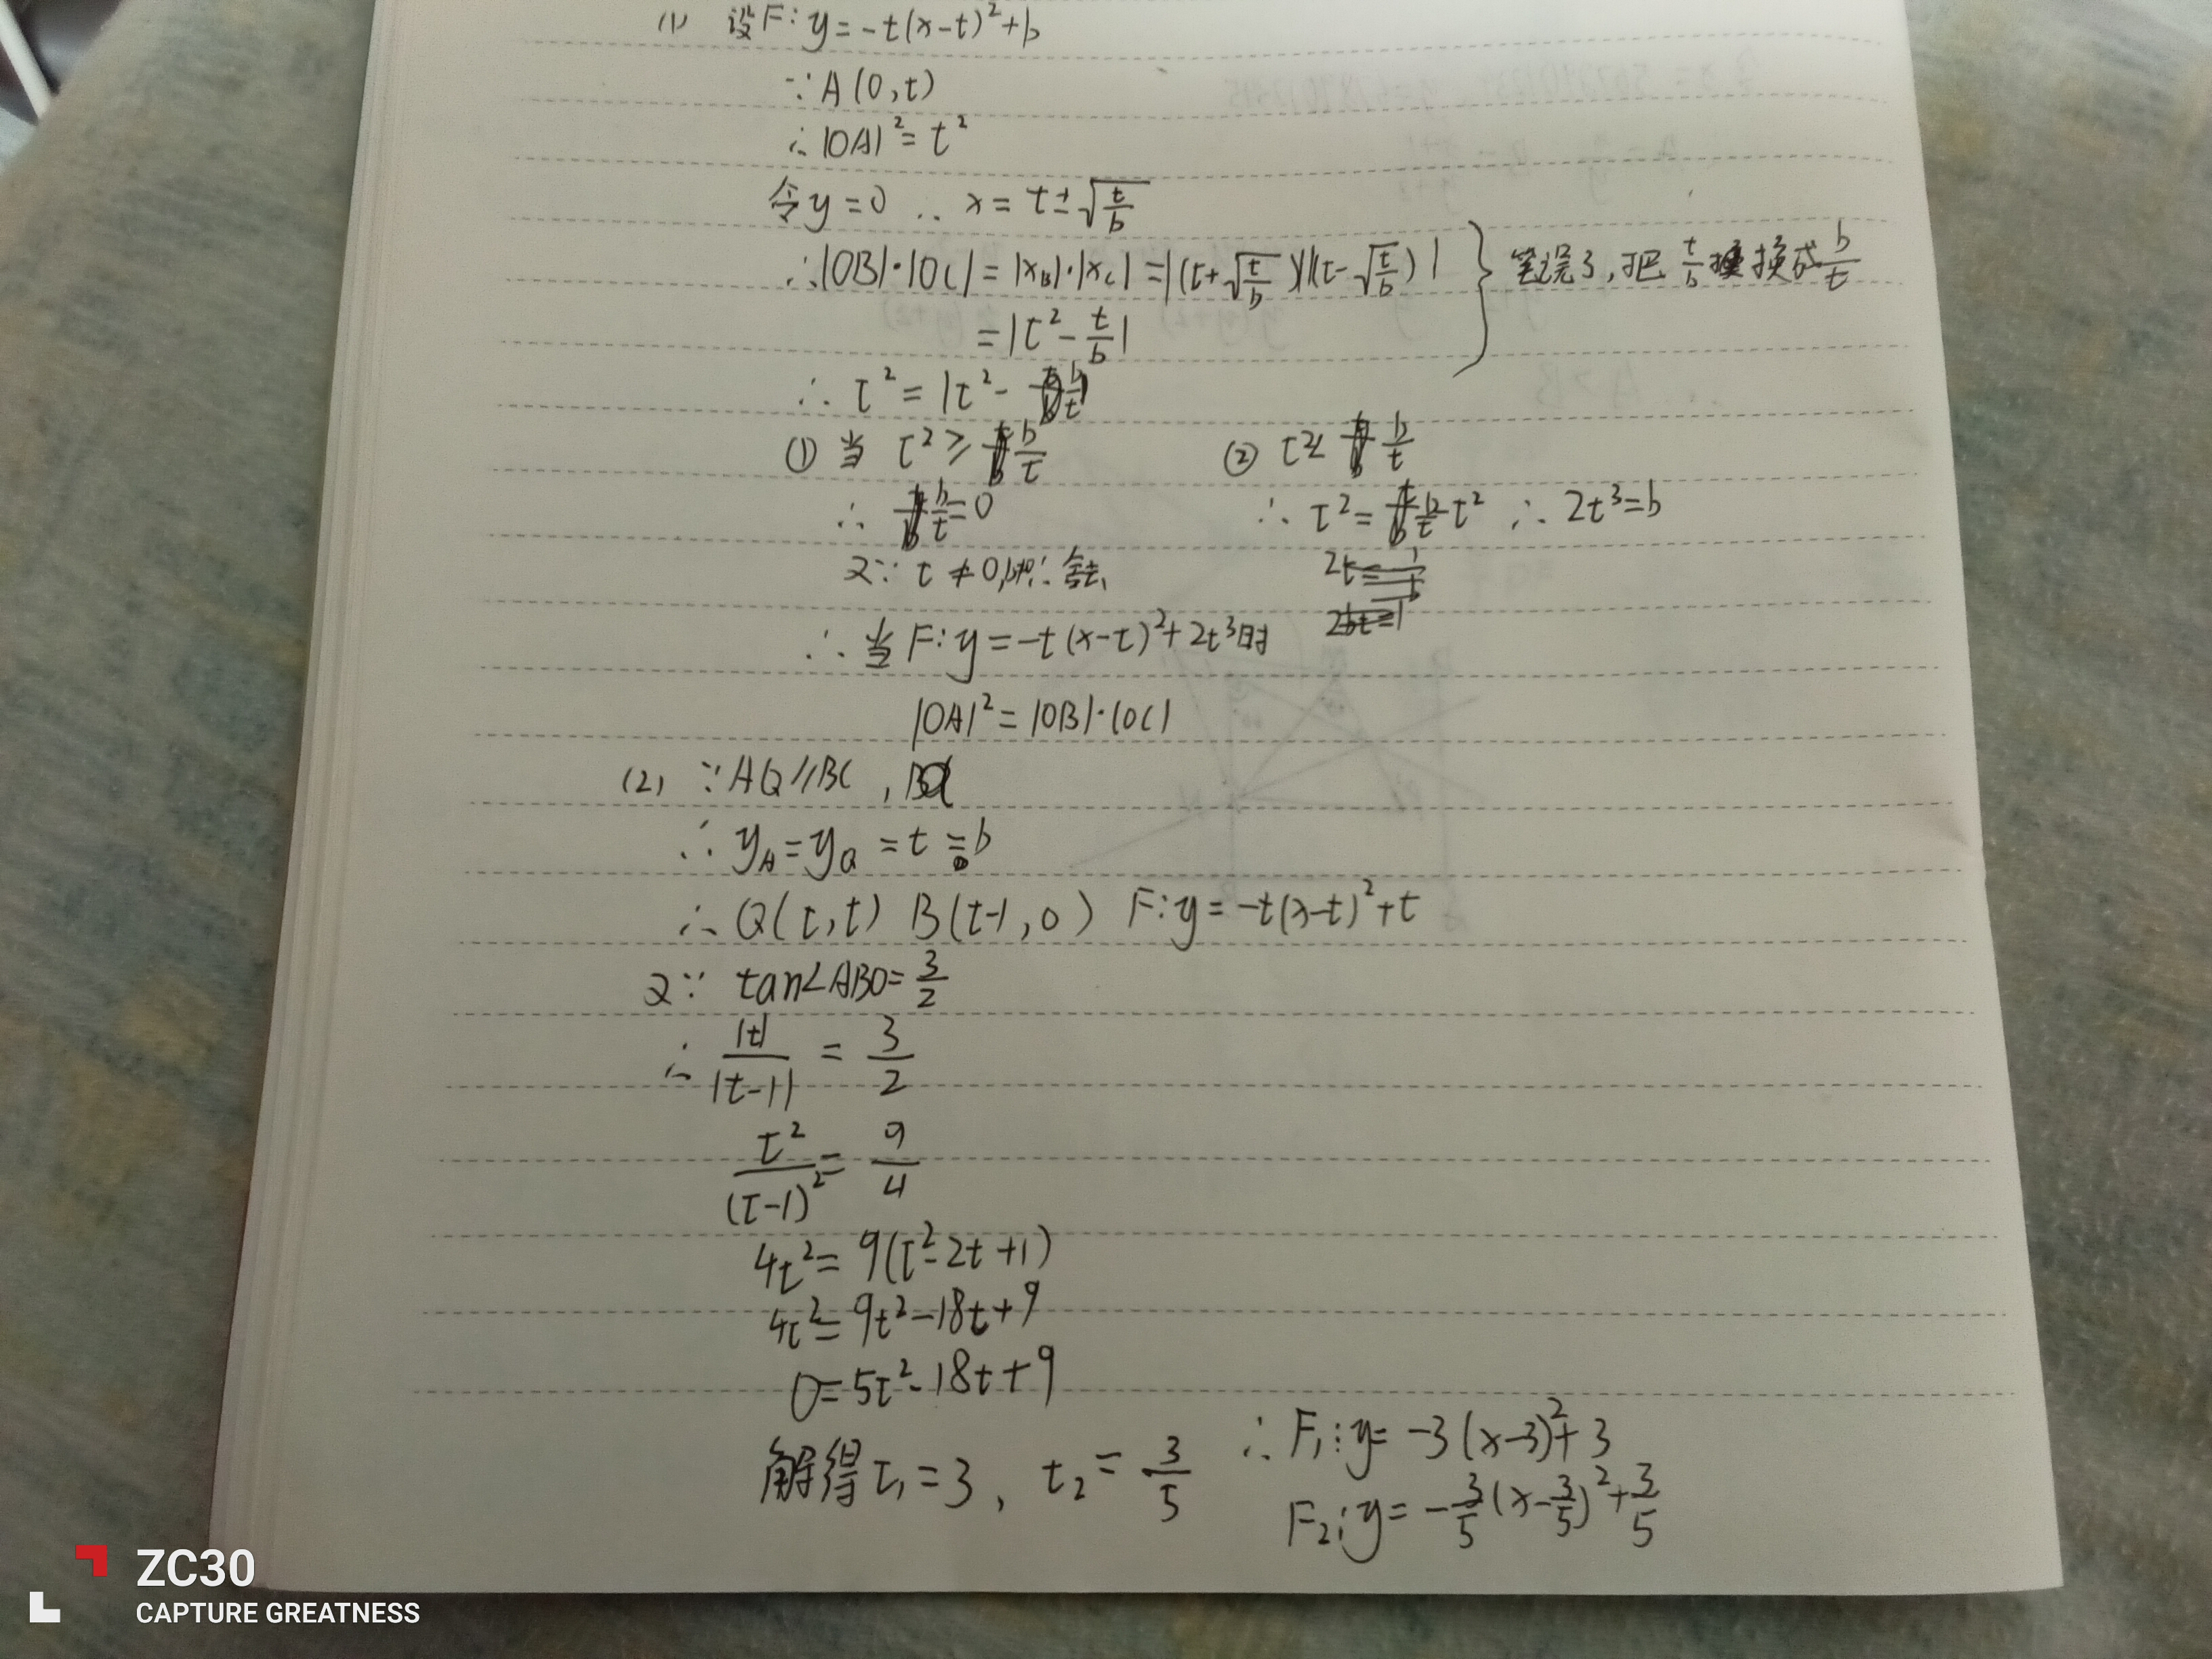 (1) 设F: y=-t(x-t)²+b
∵A(0,t)
∴|OA|²=t²
令y=0 ∴ x=t±√(t/b)
∴|OB|·|OC|=|xB|·|xC|=|(t+√(t/b))(t-√(t/b))| } 笔误了,把 t/b 换成 b/t
=|t²-t/b|
∴ t²=|t²-b/t|
① 当 t²≥b/t ② t²≤b/t
∴ b/t=0 ∴ t²=b/t-t² ∴ 2t³=b
又∵ t≠0, ∴舍去
∴当F: y=-t(x-t)²+2t³时
|OA|²=|OB|·|OC|
(2) ∵AQ//BC,
∴ yA=yQ=t=b
∴ Q(t,t) B(t-1,0) F: y=-t(x-t)²+t
又∵ tan∠ABO=3/2
∴ |t|/|t-1|=3/2
t²/(t-1)²=9/4
4t²=9(t²-2t+1)
4t²=9t²-18t+9
0=5t²-18t+9
解得t₁=3, t₂=3/5 ∴F₁: y=-3(x-3)²+3
F₂: y=-3/5(x-3/5)²+3/5
ZC30
CAPTURE GREATNESS